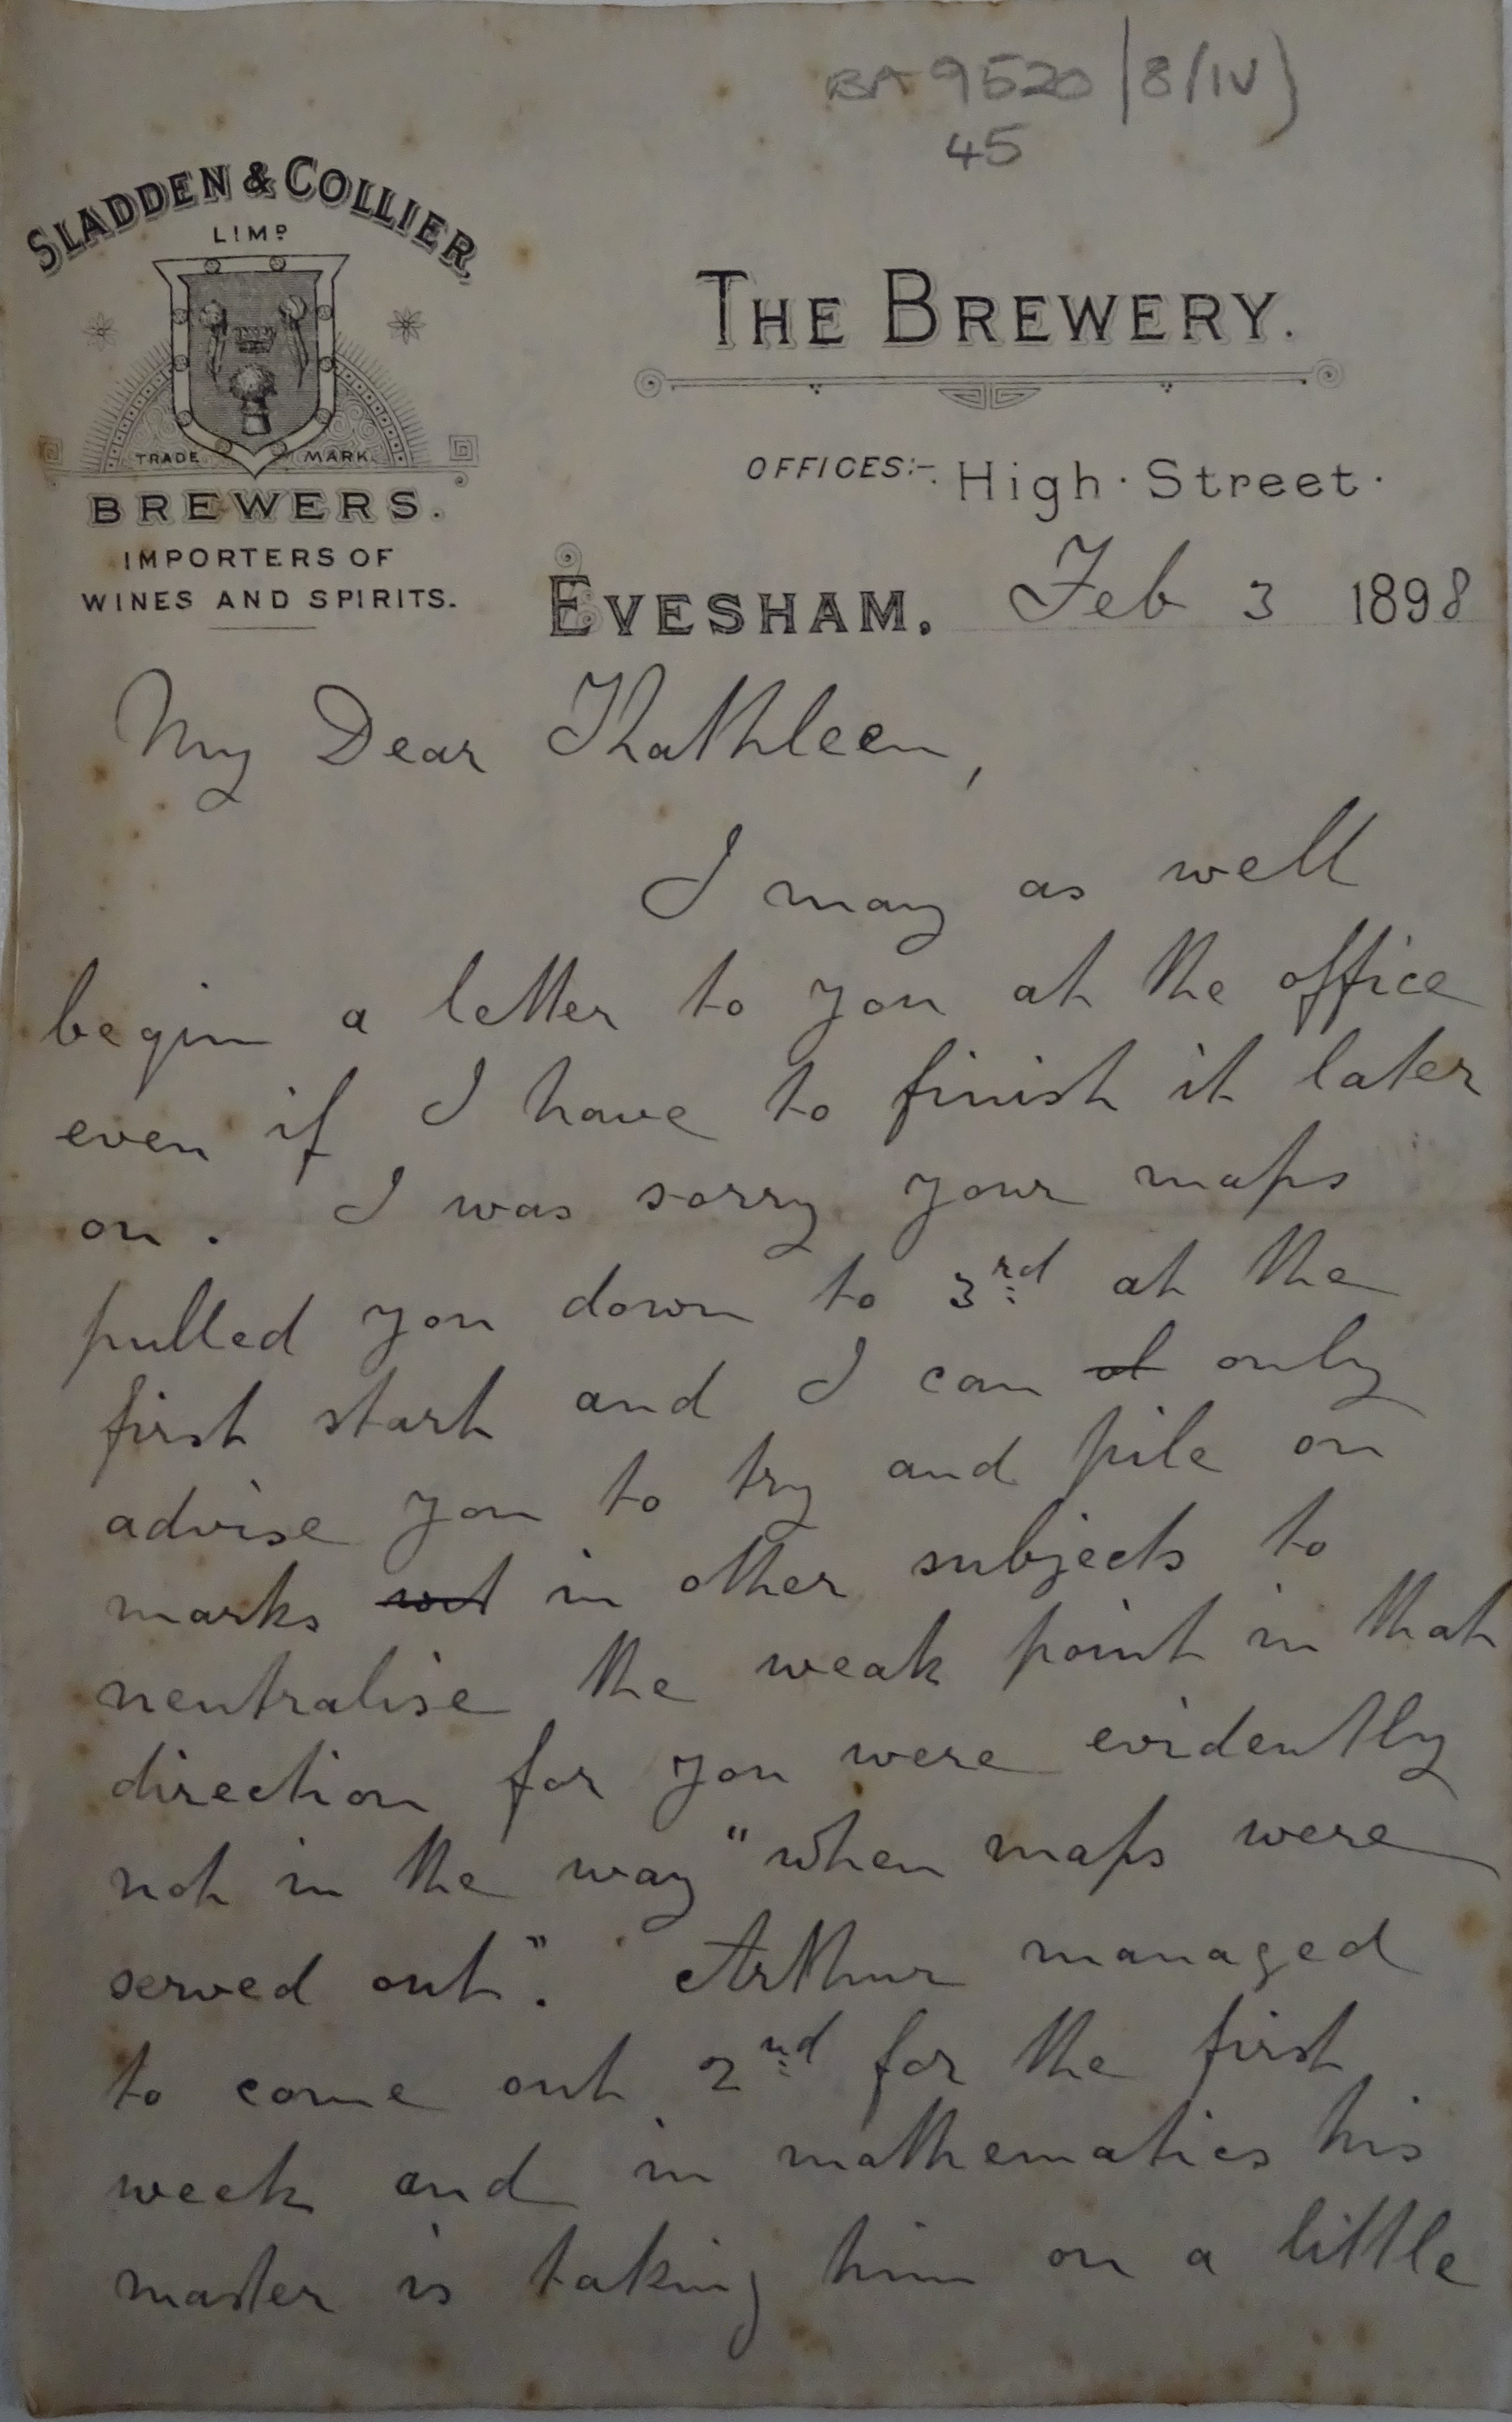 BA 9520/8/IV)
45
SLADDEN & COLLIER
LIMD
TRADE MARK
BREWERS.
IMPORTERS OF
WINES AND SPIRITS.
THE BREWERY.
OFFICES:- High Street.
EVESHAM. Feb 3 1898
My Dear Kathleen,
I may as well
begin a letter to you at the office
even if I have to finish it later
on. I was sorry your maps
pulled you down to 3rd at the
first start and I can only
advise you to try and pile on
marks in other subjects to
neutralise the weak point in that
direction for you were evidently
not in the way "when maps were
served out". Arthur managed
to come out 2nd for the first
week and in mathematics his
master is taking him on a little